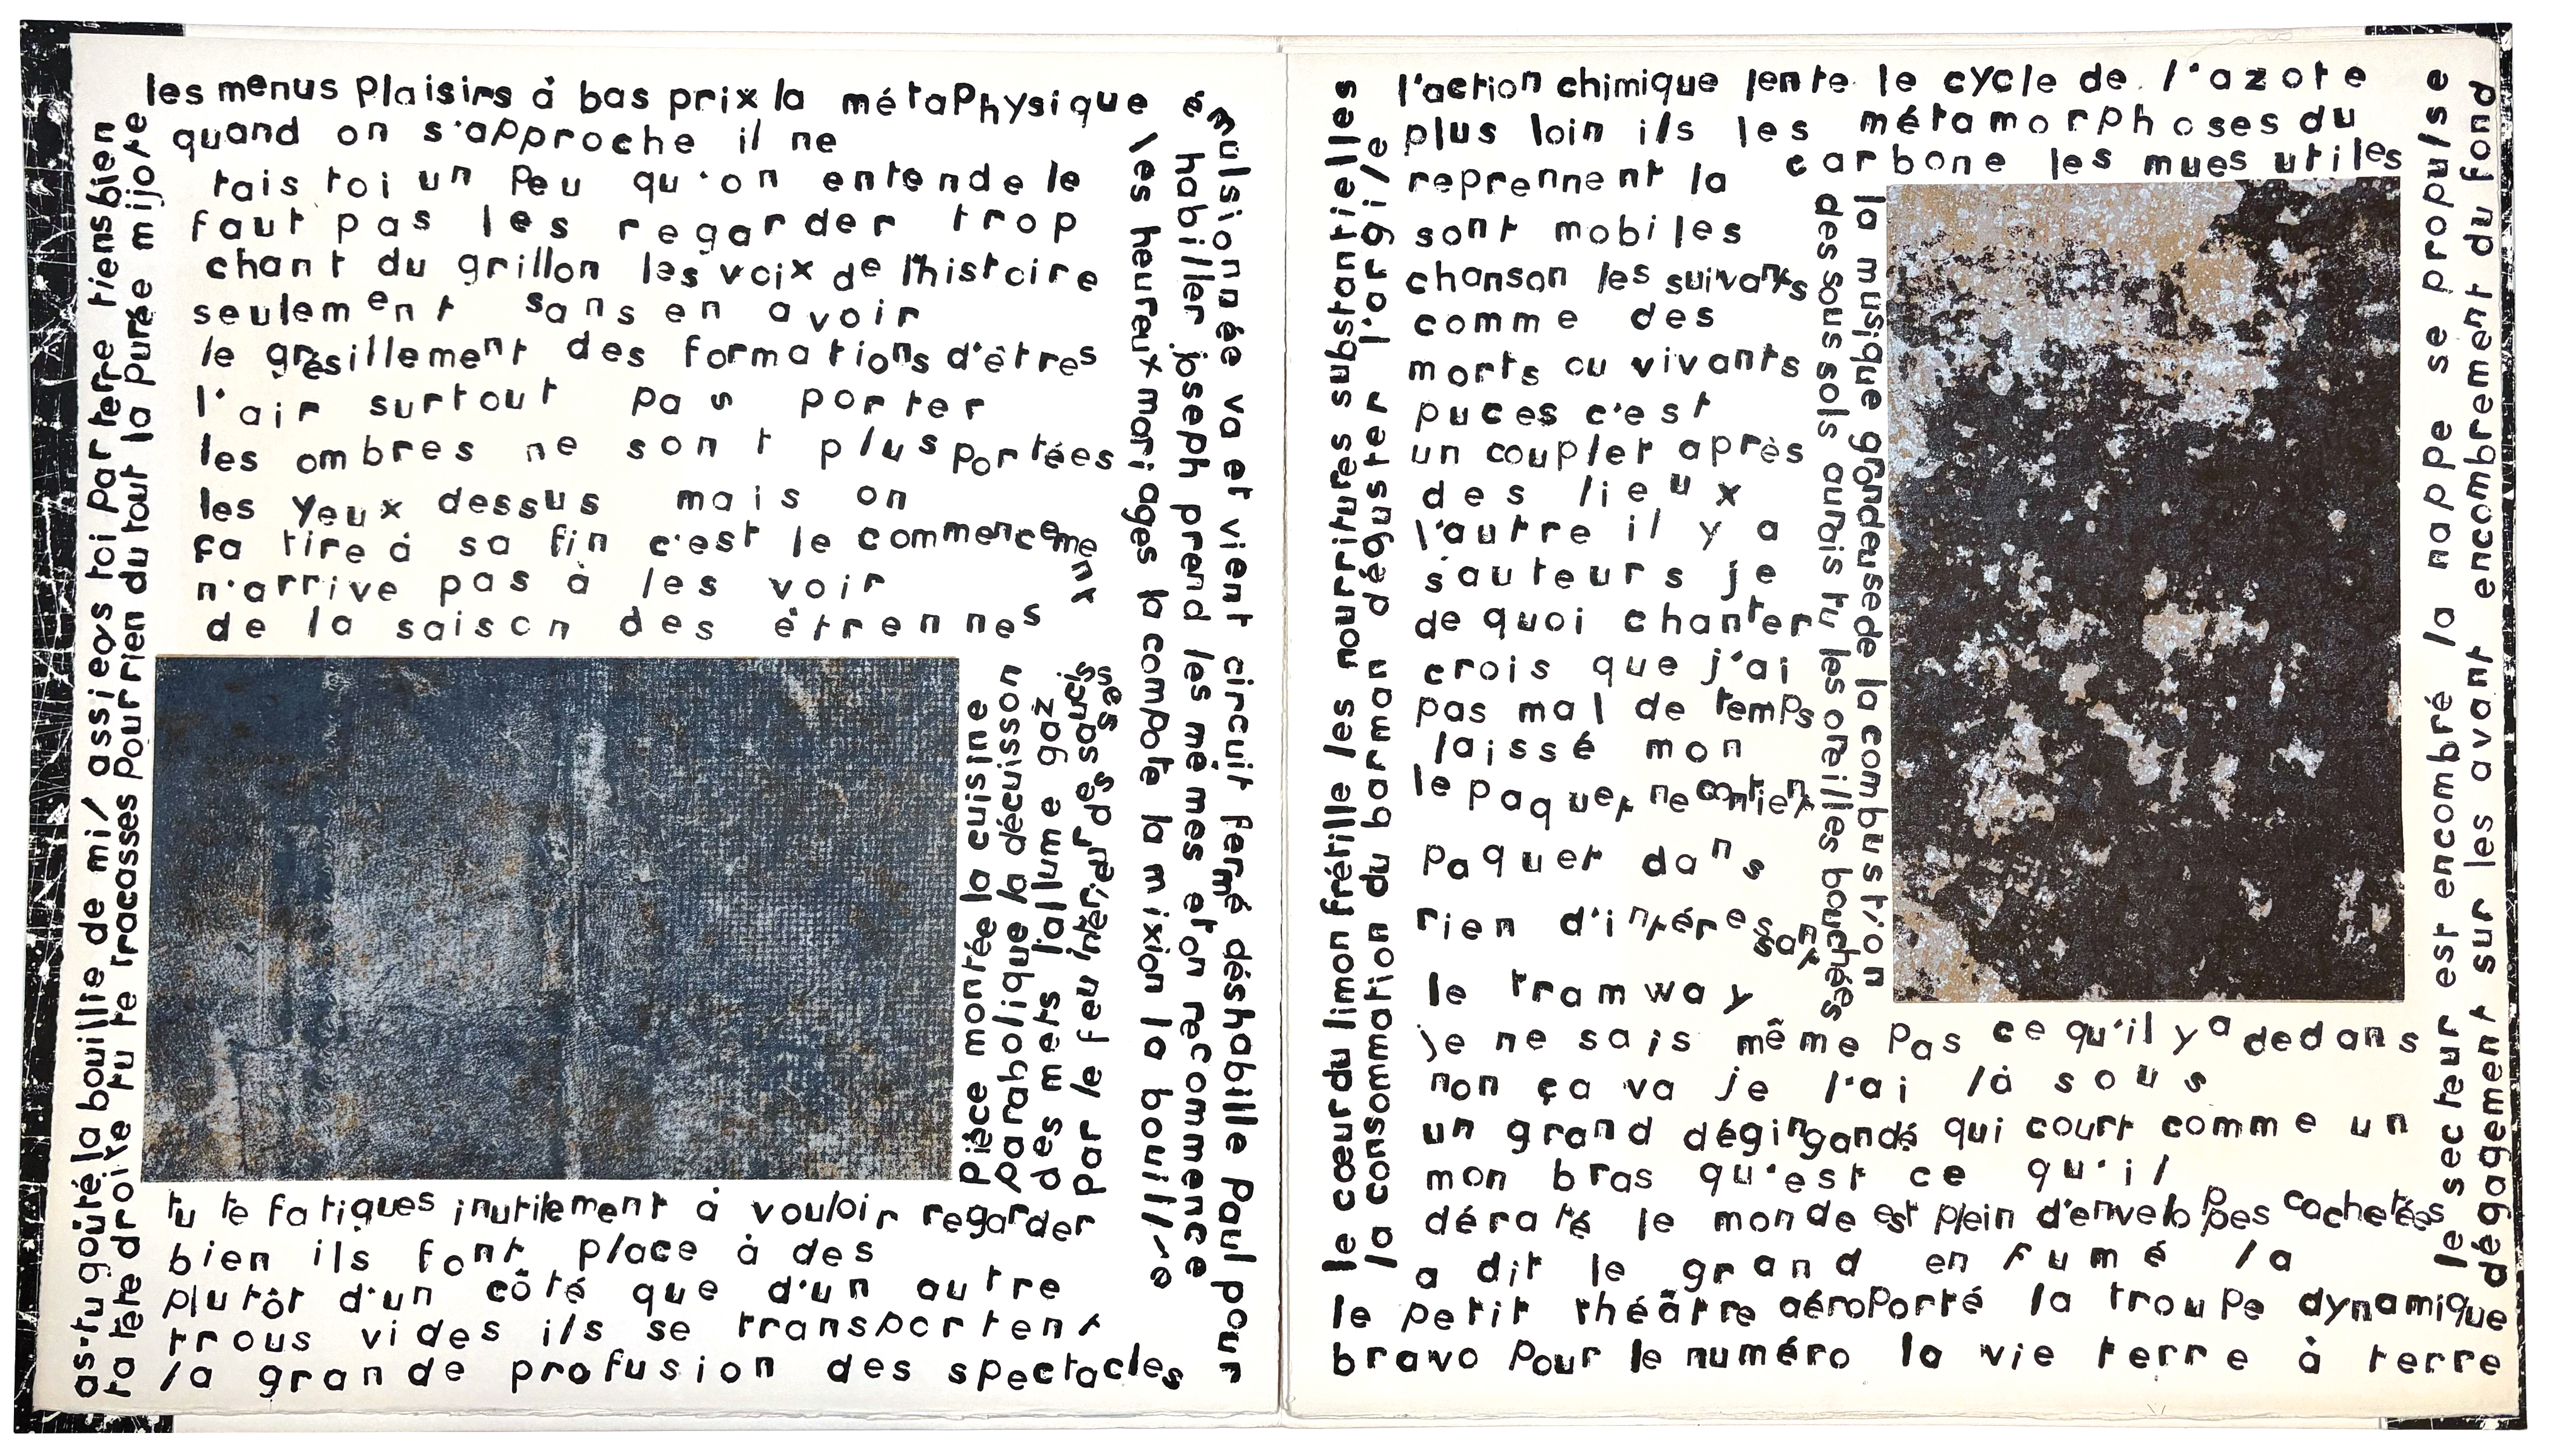 as-tu goûté la bouillie de mil assieds toi par terre tiens bien
ta tête droite tu te tracasses pour rien du tout la purée mijote
les menus plaisirs à bas prix la métaphysique
quand on s'approche il ne
tais toi un peu qu'on entende le
faut pas les regarder trop
chant du grillon les voix de l'histoire
seulement sans en avoir
le grésillement des formations d'êtres
l'air surtout pas porter
les ombres ne sont plus portées
les yeux dessus mais on
ça tire à sa fin c'est le commencement
n'arrive pas à les voir
de la saison des étrennes
pièce montée la cuisine
parabolique la décuisson
des mets l'allume gaz
par le feu intérieur des saucisses
tu te fatigues inutilement à vouloir regarder
bien ils font place à des
plutôt d'un côté que d'un autre
trous vides ils se transportent
la grande profusion des spectacles
les heureux mariages la compote la mixion la bouillie
habiller joseph prend les mêmes et on recommence
émulsionnée va et vient circuit fermé déshabille paul pour
le cœur du limon frétille les nourritures substantielles
la consommation du barman déguster l'argile
l'action chimique lente le cycle de l'azote
plus loin ils les métamorphoses du
reprennent la carbone les mues utiles
sont mobiles
chanson les suivants
comme des
morts ou vivants
puces c'est
un couplet après
des lieux
l'autre il y a
sauteurs je
de quoi chanter
crois que j'ai
pas mal de temps
laissé mon
le paquet ne contient
paquet dans
rien d'intéressant
le tramway
des sous sols aurais tu les oreilles bouchées
la musique grandeuse de la combustion
je ne sais même pas ce qu'il y a dedans
non ça va je l'ai là sous
un grand dégingandé qui court comme un
mon bras qu'est ce qu'il
dératé le monde est plein d'enveloppes cachetées
a dit le grand enfumé la
le petit théâtre aéroporté la troupe dynamique
bravo pour le numéro la vie terre à terre
le secteur est encombré la nappe se propulse
dégagement sur les avant encombrement du fond